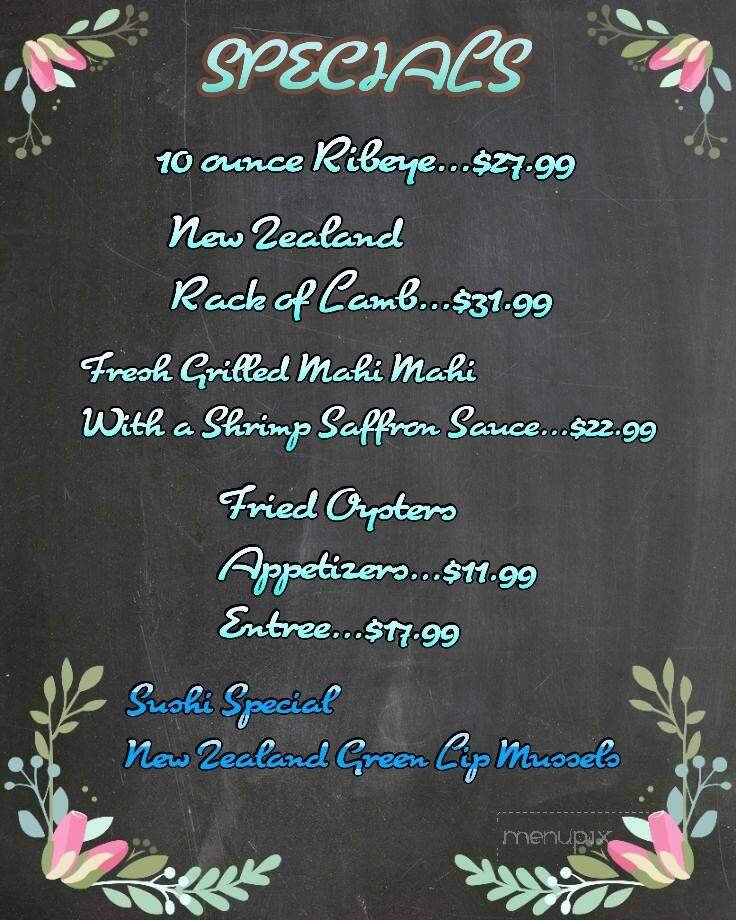 SPECIALS
10 ounce Ribeye...$27.99
New Zealand
Rack of Lamb...$31.99
Fresh Grilled Mahi Mahi
With a Shrimp Saffron Sauce...$22.99
Fried Oysters
Appetizers...$11.99
Entree...$17.99
Sushi Special
New Zealand Green Lip Mussels
menupix